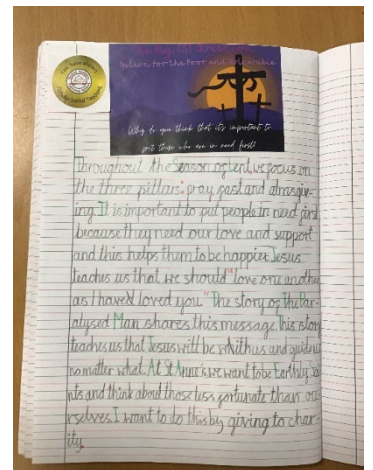 Option for the Poor and Vulnerable
Why do you think that it's important to
put those who are in need first?
Throughout the Season of Lent, we focus on
the three pillars: pray, fast and almsgiv-
ing. It is important to put people in need first
because they need our love and support
and this helps them to be happier. Jesus
teaches us that we should "love one another
as I have loved you." The story of the Par-
alysed Man shares this message. This story
teaches us that Jesus will be whith us and guide us
no matter what. At St Anne's we want to be Earthly Sai
nts and think about those less fortunate than ou
rselves. I want to do this by giving to char-
ity.